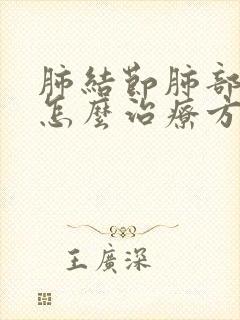 肺結節肺部
怎麼治療方
王廣深